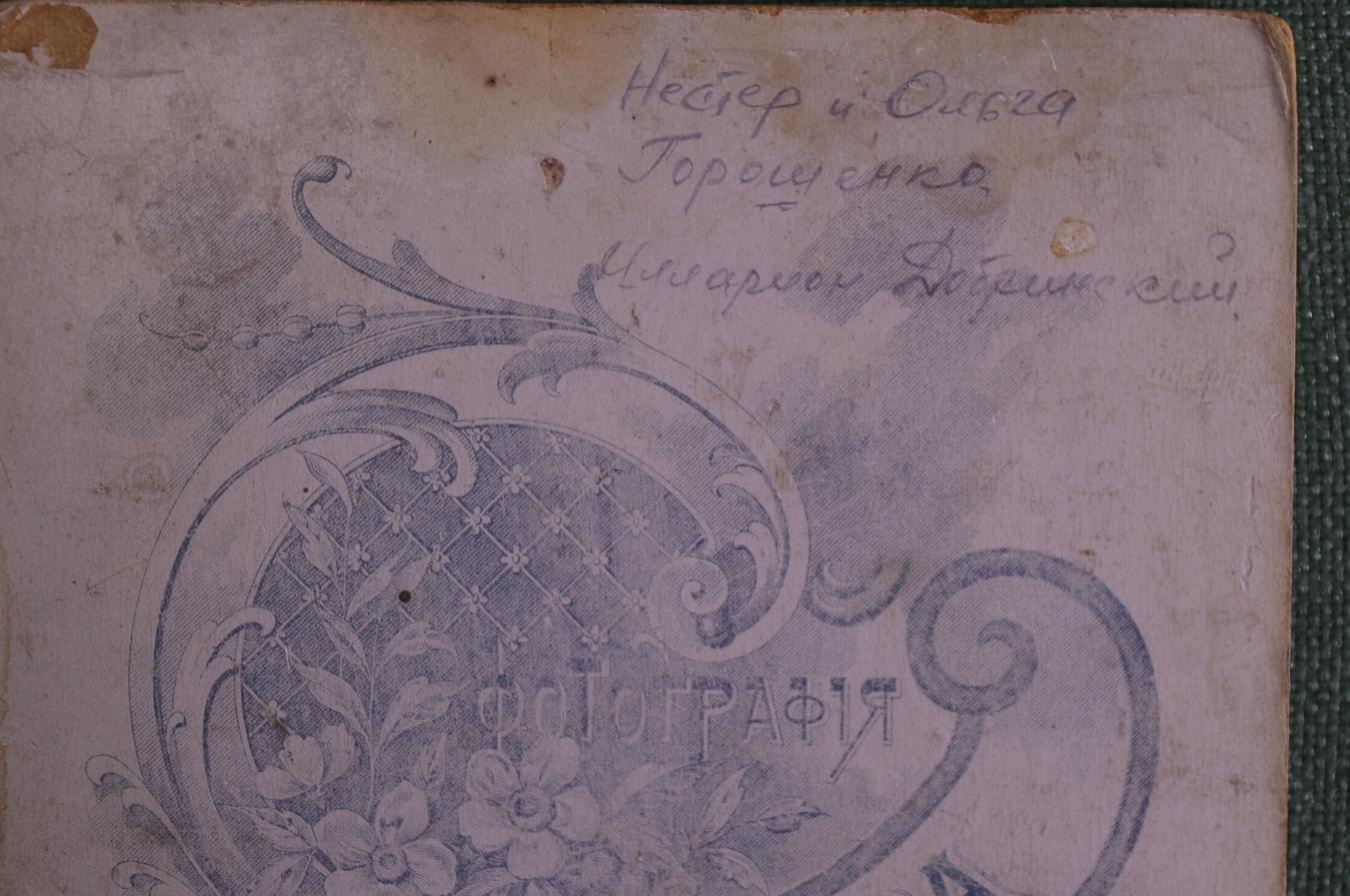 Нестер и Ольга
Горошенко
Илларион Добринский
ФОТОГРАФІЯ